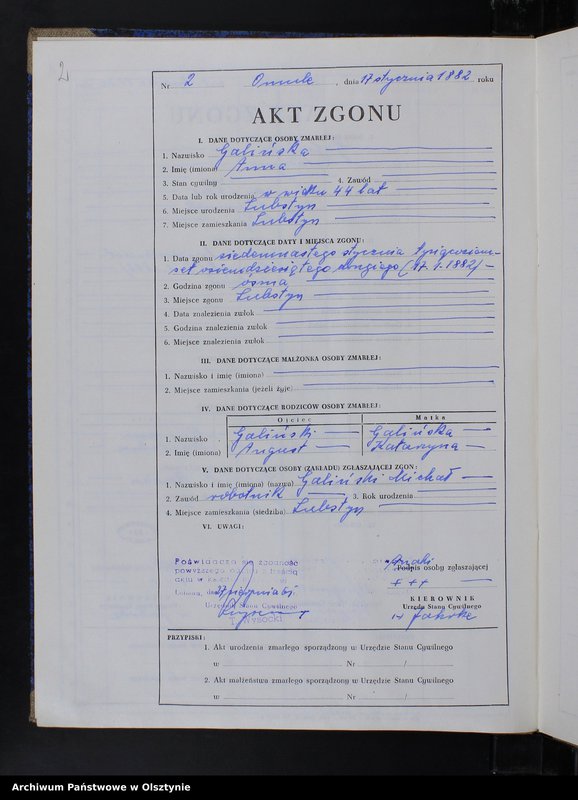 2
Nr 2 Omule , dnia 17 stycznia 1882 roku
AKT ZGONU
I. DANE DOTYCZĄCE OSOBY ZMARŁEJ:
1. Nazwisko Galińska
2. Imię (imiona) Anna
3. Stan cywilny 4. Zawód
5. Data lub rok urodzenia w wieku 44 lat
6. Miejsce urodzenia Lubstyn
7. Miejsce zamieszkania Lubstyn
II. DANE DOTYCZĄCE DATY I MIEJSCA ZGONU:
1. Data zgonu siedemnastego stycznia tysiąc osiem-
set osiemdziesiątego drugiego (17.1.1882)
2. Godzina zgonu ósma
3. Miejsce zgonu Lubstyn
4. Data znalezienia zwłok
5. Godzina znalezienia zwłok
6. Miejsce znalezienia zwłok
III. DANE DOTYCZĄCE MAŁŻONKA OSOBY ZMARŁEJ:
1. Nazwisko i imię (imiona)
2. Miejsce zamieszkania (jeżeli żyje)
IV. DANE DOTYCZĄCE RODZICÓW OSOBY ZMARŁEJ:
Ojciec Matka
1. Nazwisko Galiński Galińska
2. Imię (imiona) August Katarzyna
V. DANE DOTYCZĄCE OSOBY (ZAKŁADU) ZGŁASZAJĄCEJ ZGON:
1. Nazwisko i imię (imiona) (nazwa) Galiński Michał
2. Zawód robotnik 3. Rok urodzenia
4. Miejsce zamieszkania (siedziba) Lubstyn
VI. UWAGI:
Poświadcza się zgodność
powyższego z treścią
aktu w
dnia 27 sierpnia 65
Urzędu Stanu Cywilnego
T. WYSOCKI
znaki
Podpis osoby zgłaszającej
+ + +
KIEROWNIK
Urzędu Stanu Cywilnego
PRZYPISKI:
1. Akt urodzenia zmarłego sporządzony w Urzędzie Stanu Cywilnego
w Nr /
2. Akt małżeństwa zmarłego sporządzony w Urzędzie Stanu Cywilnego
w Nr /
Archiwum Państwowe w Olsztynie